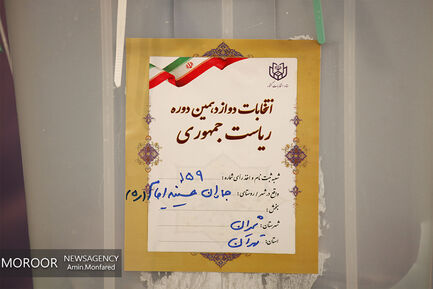 ستاد انتخابات کشور
انتخابات دوازدهمین دوره
ریاست جمهوری
شعبه ثبت نام و اخذ رای شماره: ۱۵۹
واقع در شهر / روستای: جماران حسینیه امام
بخش:
شهرستان: شمیران
استان: تهران
MOROOR NEWSAGENCY
Amin.Monfared